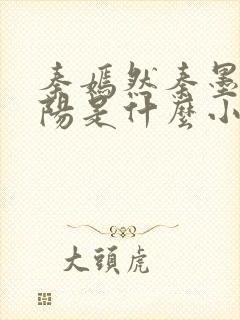 秦嫣然秦墨
陽是什麼小
大頭虎